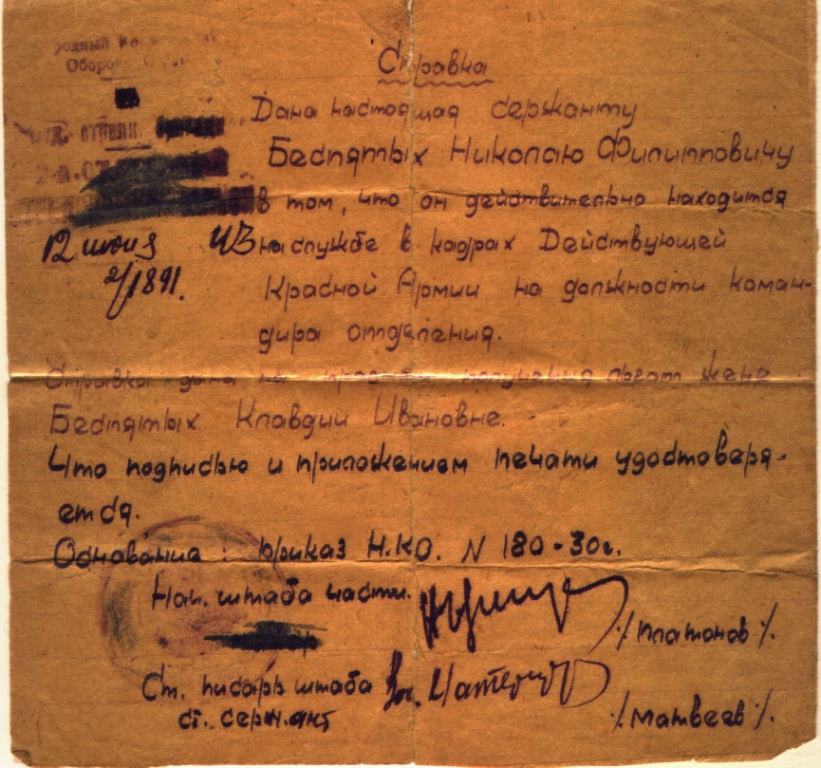 Обороны
Справка
отд. стрелк.
Дана настоящая сержанту
Беспятых Николаю Филипповичу
в том, что он действительно находится
12 июня 43 на службе в кадрах Действующей
2/1891.
Красной Армии на должности коман-
дира отделения.
Справка дана на предмет получения льгот жене
Беспятых Клавдии Ивановне.
Что подписью и приложением печати удостоверя-
ется.
Основание: приказ Н.К.О. N 180-30г.
Нач. штаба части.
/Платонов/.
Ст. писарь штаба
ст. сержант
/Матвеев/.